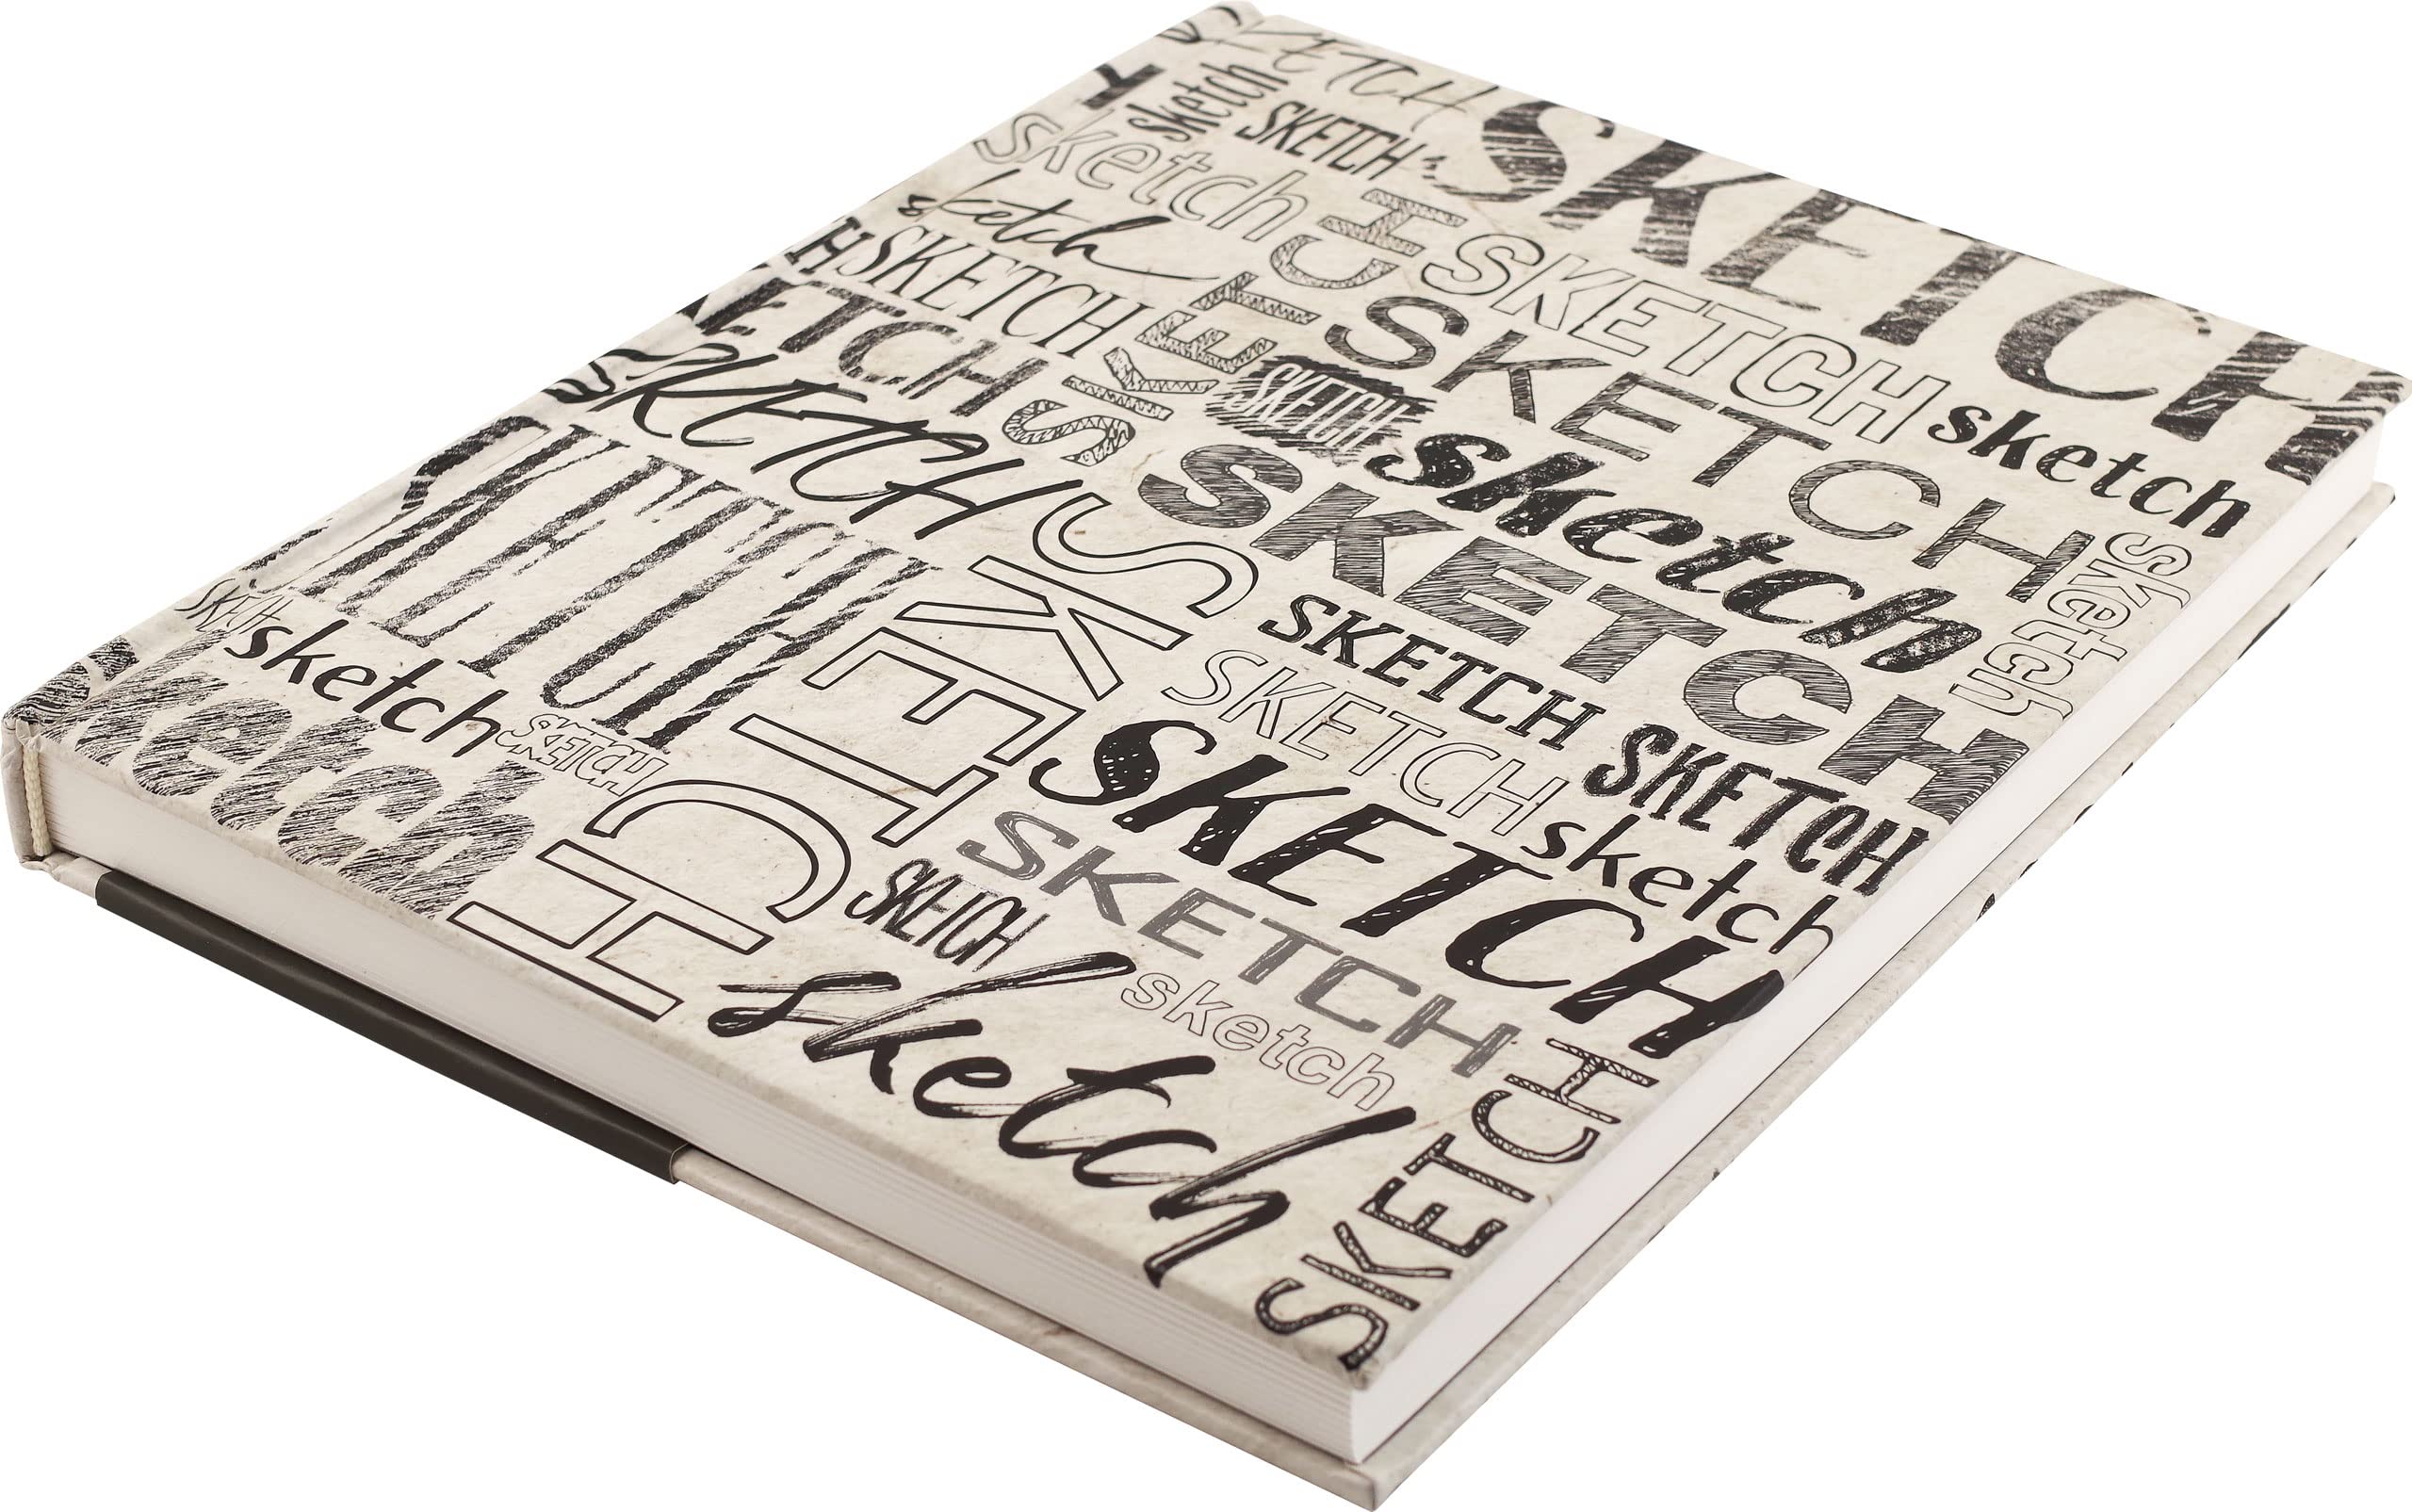 SKETCH
SKETCH
sketch
SKETCH
sketch
sketch
SKETCH
SKETCH
SKETCH
SKETCH
SKETCH
sketch
SKETCH
SKETCH
SKETCH
sketch
SKETCH
sketch
SKETCH
SKETCH
SKETCH
sketch
SKETCH
SKETCH
SKETCH
SKETCH
sketch
sketch
SKETCH
sketch
SKETCH
SKETCH
sketch
sketch
SKETCH